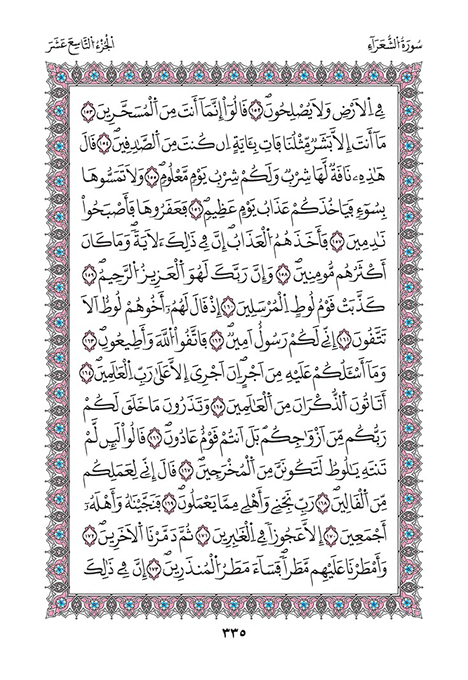 سُورَةُ الشُّعَرَآءِ
الجُزْءُ التَّاسِعَ عَشَرَ
فِي اِلَارْضِ وَلَا يُصْلِحُونَ ١٥٢ قَالُوٓاْ إِنَّمَآ أَنتَ مِنَ اَلْمُسَحَّرِينَ ١٥٣
مَآ أَنتَ إِلَّا بَشَرٌ مِّثْلُنَا فَاتِ بِـَٔايَةٍ اِن كُنتَ مِنَ اَلصَّٰدِقِينَ ١٥٤ قَالَ
هَٰذِهِۦ نَاقَةٌ لَّهَا شِرْبٌ وَلَكُمْ شِرْبُ يَوْمٍ مَّعْلُومٍ ١٥٥ وَلَا تَمَسُّوهَا
بِسُوٓءٍ فَيَاخُذَكُمْ عَذَابُ يَوْمٍ عَظِيمٍ ١٥٦ فَعَقَرُوهَا فَأَصْبَحُواْ
نَٰدِمِينَ ١٥٧ فَأَخَذَهُمُ اُلْعَذَابُ إِنَّ فِي ذَٰلِكَ لَأٓيَةً وَمَا كَانَ
أَكْثَرُهُم مُّومِنِينَ ١٥٨ وَإِنَّ رَبَّكَ لَهُوَ اَلْعَزِيزُ اُلرَّحِيمُ ١٥٩
كَذَّبَتْ قَوْمُ لُوطٍ اِلْمُرْسَلِينَ ١٦٠ إِذْ قَالَ لَهُمُۥٓ أَخُوهُمْ لُوطٌ اَلَا
تَتَّقُونَ ١٦١ إِنِّي لَكُمْ رَسُولٌ اَمِينٌ ١٦٢ فَاتَّقُواْ اُللَّهَ وَأَطِيعُونِ ١٦٣
وَمَآ أَسْـَٔلُكُمْ عَلَيْهِ مِنَ اَجْرٍ اِنَ اَجْرِيَ إِلَّا عَلَىٰ رَبِّ اِلْعَٰلَمِينَ ١٦٤
أَتَاتُونَ اَلذُّكْرَانَ مِنَ اَلْعَٰلَمِينَ ١٦٥ وَتَذَرُونَ مَا خَلَقَ لَكُمْ
رَبُّكُم مِّنَ اَزْوَٰجِكُم بَلَ اَنتُمْ قَوْمٌ عَادُونَ ١٦٦ قَالُواْ لَئِن لَّمْ
تَنتَهِ يَٰلُوطُ لَتَكُونَنَّ مِنَ اَلْمُخْرَجِينَ ١٦٧ قَالَ إِنِّي لِعَمَلِكُم
مِّنَ اَلْقَالِينَ ١٦٨ رَبِّ نَجِّنِي وَأَهْلِي مِمَّا يَعْمَلُونَ ١٦٩ فَنَجَّيْنَٰهُ وَأَهْلَهُۥٓ
أَجْمَعِينَ ١٧٠ إِلَّا عَجُوزًا فِي اِلْغَٰبِرِينَ ١٧١ ثُمَّ دَمَّرْنَا اَلَاخَرِينَ ١٧٢
وَأَمْطَرْنَا عَلَيْهِم مَّطَرًا فَسَآءَ مَطَرُ اُلْمُنذَرِينَ ١٧٣ إِنَّ فِي ذَٰلِكَ
٣٣٥